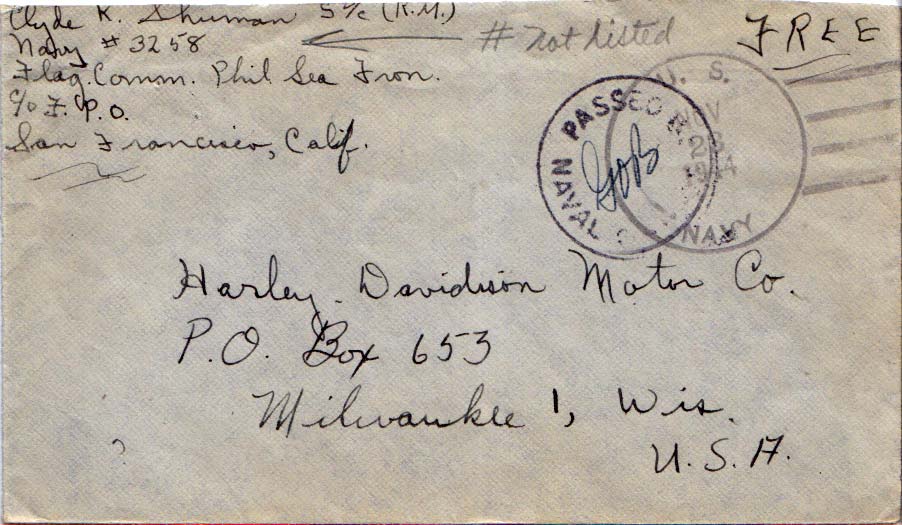 Clyde R. Shuman S 1/c (R.M.)
Navy # 3258
# not listed
FREE
Flag. Comm. Phil Sea Fron.
c/o F. P. O.
San Francisco, Calif.
PASSED
NAVAL
U. S.
NOV
NAVY
Harley-Davidson Motor Co.
P.O. Box 653
Milwaukee 1, Wis.
U. S. A.